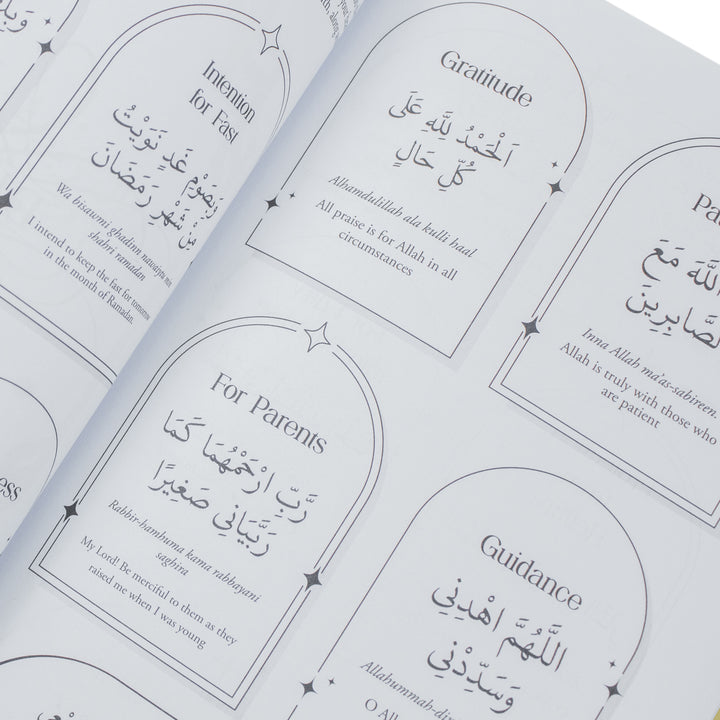 Intention
for Fast
وَبِصَوْمِ غَدٍ نَوَيْتُ
مِنْ شَهْرِ رَمَضَانَ
Wa bisawmi ghadinn nawaiytu min
shahri ramadan
I intend to keep the fast for tomorrow
in the month of Ramadan.
Gratitude
اَلْحَمْدُ لِلّٰهِ عَلَى
كُلِّ حَالٍ
Alhamdulillah ala kulli haal
All praise is for Allah in all
circumstances
اللّٰهَ مَعَ
الصَّابِرِينَ
Inna Allah ma'as-sabireen.
Allah is truly with those who
are patient
For Parents
رَّبِّ ارْحَمْهُمَا كَمَا
رَبَّيَانِي صَغِيرًا
Rabbir-hamhuma kama rabbayani
saghira
My Lord! Be merciful to them as they
raised me when I was young
Guidance
اللَّهُمَّ اهْدِنِي
وَسَدِّدْنِي
Allahummah-din
O Al